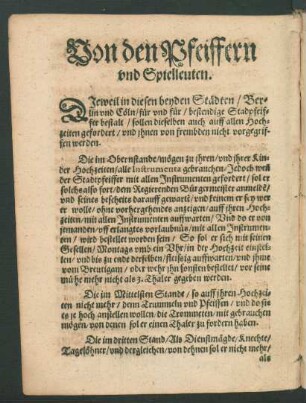 Von den Pfeiffern
vnd Spielleuten.
DJeweil in diesen beyden Städten / Ber-
lin vnd Cöln / für vnd für / bestendige Stadpfeif-
fer bestalt / sollen dieselben auch auff allen Hoch-
zeiten gefordert / vnd jhnen von frembden nicht vorgegrif-
fen werden.
Die im Obernstande / mögen zu jhren / vnd jhrer Kin-
der Hochzeiten / alle Instrumenta gebrauchen / Jedoch weil
der Stadpfeiffer mit allen Instrumenten gefordert / sol er
solchs also fort / dem Regierenden Bürgermeister anmeldē /
vnd seines bescheits darauff gewartē / vnd keinem er sey wer
er wolle / ohne vorhergehendes anzeigen / auff jhren Hoch-
zeiten / mit allen Instrumenten auffwarten / Vnd do er von
jemanden / auff erlangtes vorlaubnüs / mit allen Instrumen-
ten / wird bestellet worden sein / So sol er sich mit seinen
Gesellen / Montags vmb ein Vhr / im der Hochzeit einstel-
len / vnd bis zu ende derselben / fleissig auffwarten / vnd jhme
vom Breutigam / oder wehr jhn sonsten bestellet / vor seine
mühe mehr nicht als 3. Thaler gegeben werden.
Die im Mittelsten Stande / so auff jhren Hochzei-
ten nicht mehr / denn Trummeln vnd Pfeiffen / vnd do sie
hoch anstellen wollen / die Trommeten / mit gebrauchen
mögen / von denen sol er einen Thaler zu fordern haben.
Die im dritten Stand / Als Dienstmägde / Knechte /
Tagelöhner / vnd dergleichen / von dehnen sol er nicht mehr /
als